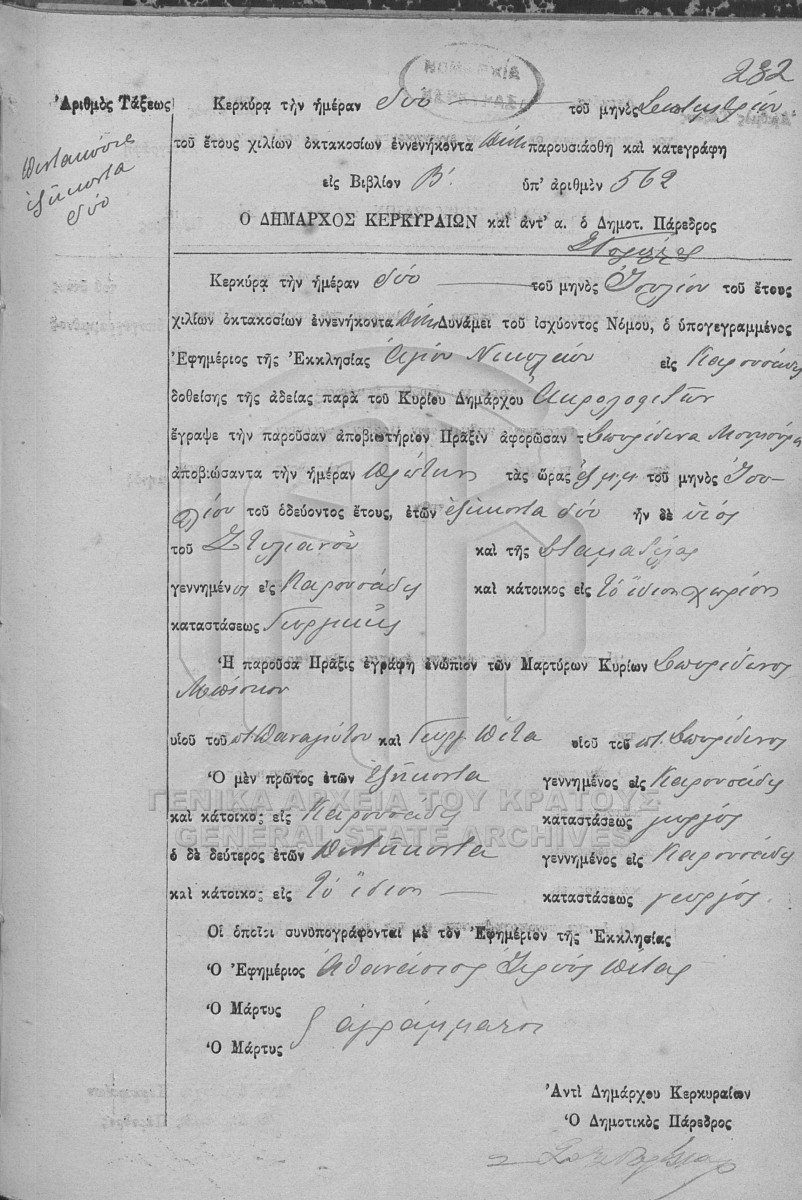 232
Ἀριθμὸς Τάξεως
Πεντακόσια
ἑξήκοντα
δύο
Κερκύρᾳ τὴν ἡμέραν δύο τοῦ μηνὸς Σεπτεμβρίου
τοῦ ἔτους χιλίων ὀκτακοσίων ἐννενήκοντα πέντε παρουσιάσθη καὶ κατεγράφη
εἰς Βιβλίον Β΄. ὑπ' ἀριθμὸν 562
Ο ΔΗΜΑΡΧΟΣ ΚΕΡΚΥΡΑΙΩΝ καὶ ἀντ' α. ὁ Δημοτ. Πάρεδρος
Κερκύρᾳ τὴν ἡμέραν δύο τοῦ μηνὸς Ἰουλίου τοῦ ἔτους
χιλίων ὀκτακοσίων ἐννενήκοντα πέντε Δυνάμει τοῦ ἰσχύοντος Νόμου, ὁ ὑπογεγραμμένος
Ἐφημέριος τῆς Ἐκκλησίας Ἁγίου Νικολάου εἰς Καρουσάδες
δοθείσης τῆς ἀδείας παρὰ τοῦ Κυρίου Δημάρχου Ἀκρολοφιτῶν
ἔγραψε τὴν παροῦσαν ἀποβιωτήριον Πρᾶξιν ἀφορῶσαν τ Σπυρίδωνα
ἀποβιώσαντα τὴν ἡμέραν πρώτην τὰς ὥρας ἓξ μ.μ. τοῦ μηνὸς Ἰου-
λίου τοῦ ὁδεύοντος ἔτους, ἐτῶν ἑξήκοντα δύο ἦν δὲ υἱός
τοῦ Στυλιανοῦ καὶ τῆς Σταματέλας
γεννημένος εἰς Καρουσάδες καὶ κάτοικος εἰς τὸ ἴδιον χωρίον
καταστάσεως Γεωργικῆς
Ἡ παροῦσα Πρᾶξις ἐγράφη ἐνώπιον τῶν Μαρτύρων Κυρίων Σπυρίδωνος
υἱοῦ τοῦ π. Παναγιώτου καὶ Γεωργ. Πέτα υἱοῦ τοῦ π. Σπυρίδωνος
Ὁ μὲν πρῶτος ἐτῶν ἑξήκοντα γεννημένος εἰς Καρουσάδες
καὶ κάτοικος εἰς Καρουσάδες καταστάσεως γεωργός
ὁ δὲ δεύτερος ἐτῶν πεντήκοντα γεννημένος εἰς Καρουσάδες
καὶ κάτοικος εἰς τὸ ἴδιον καταστάσεως γεωργός.
Οἱ ὁποῖοι συνυπογράφονται μὲ τὸν Ἐφημέριον τῆς Ἐκκλησίας
Ὁ Ἐφημέριος Ἀθανάσιος Ἱερεὺς Πέτας
Ὁ Μάρτυς
ἀγράμματοι
Ὁ Μάρτυς
Ἀντὶ Δημάρχου Κερκυραίων
Ὁ Δημοτικὸς Πάρεδρος
ΓΕΝΙΚΑ ΑΡΧΕΙΑ ΤΟΥ ΚΡΑΤΟΥΣ
GENERAL STATE ARCHIVES